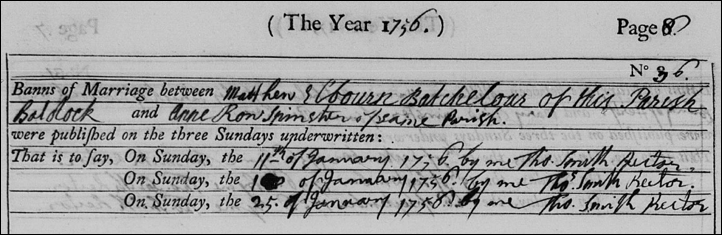 ( The Year 1756. )
Page 8
N° 36.
Banns of Marriage between Matthew Elbourn Batchelour of this Parish
Baldock and Anne Row Spinster of same Parish.
were publiſhed on the three Sundays underwritten:
That is to ſay, On Sunday, the 11th of January 1756. by me Tho. Smith Rector.
On Sunday, the of January 1756. by me Tho.s Smith Rector.
On Sunday, the 25 of January 1756 by me Tho. Smith Rector